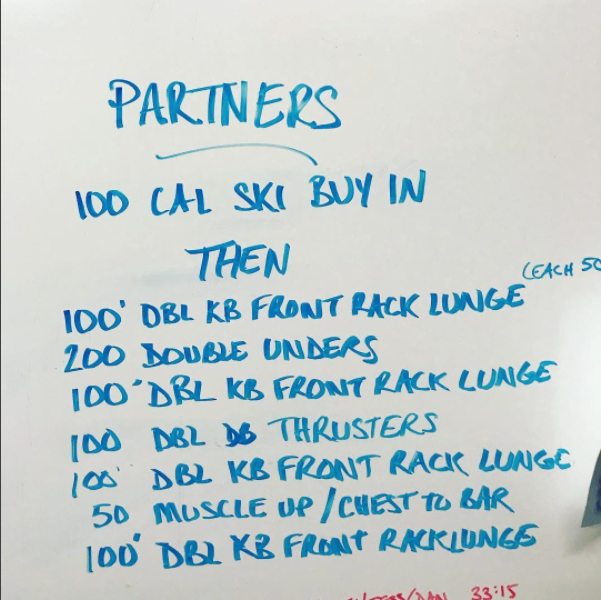 PARTNERS
100 CAL SKI BUY IN
THEN
(EACH 50
100' DBL KB FRONT RACK LUNGE
200 DOUBLE UNDERS
100' DBL KB FRONT RACK LUNGE
100 DBL DB THRUSTERS
100' DBL KB FRONT RACK LUNGE
50 MUSCLE UP / CHEST TO BAR
100' DBL KB FRONT RACK LUNGE
33:15